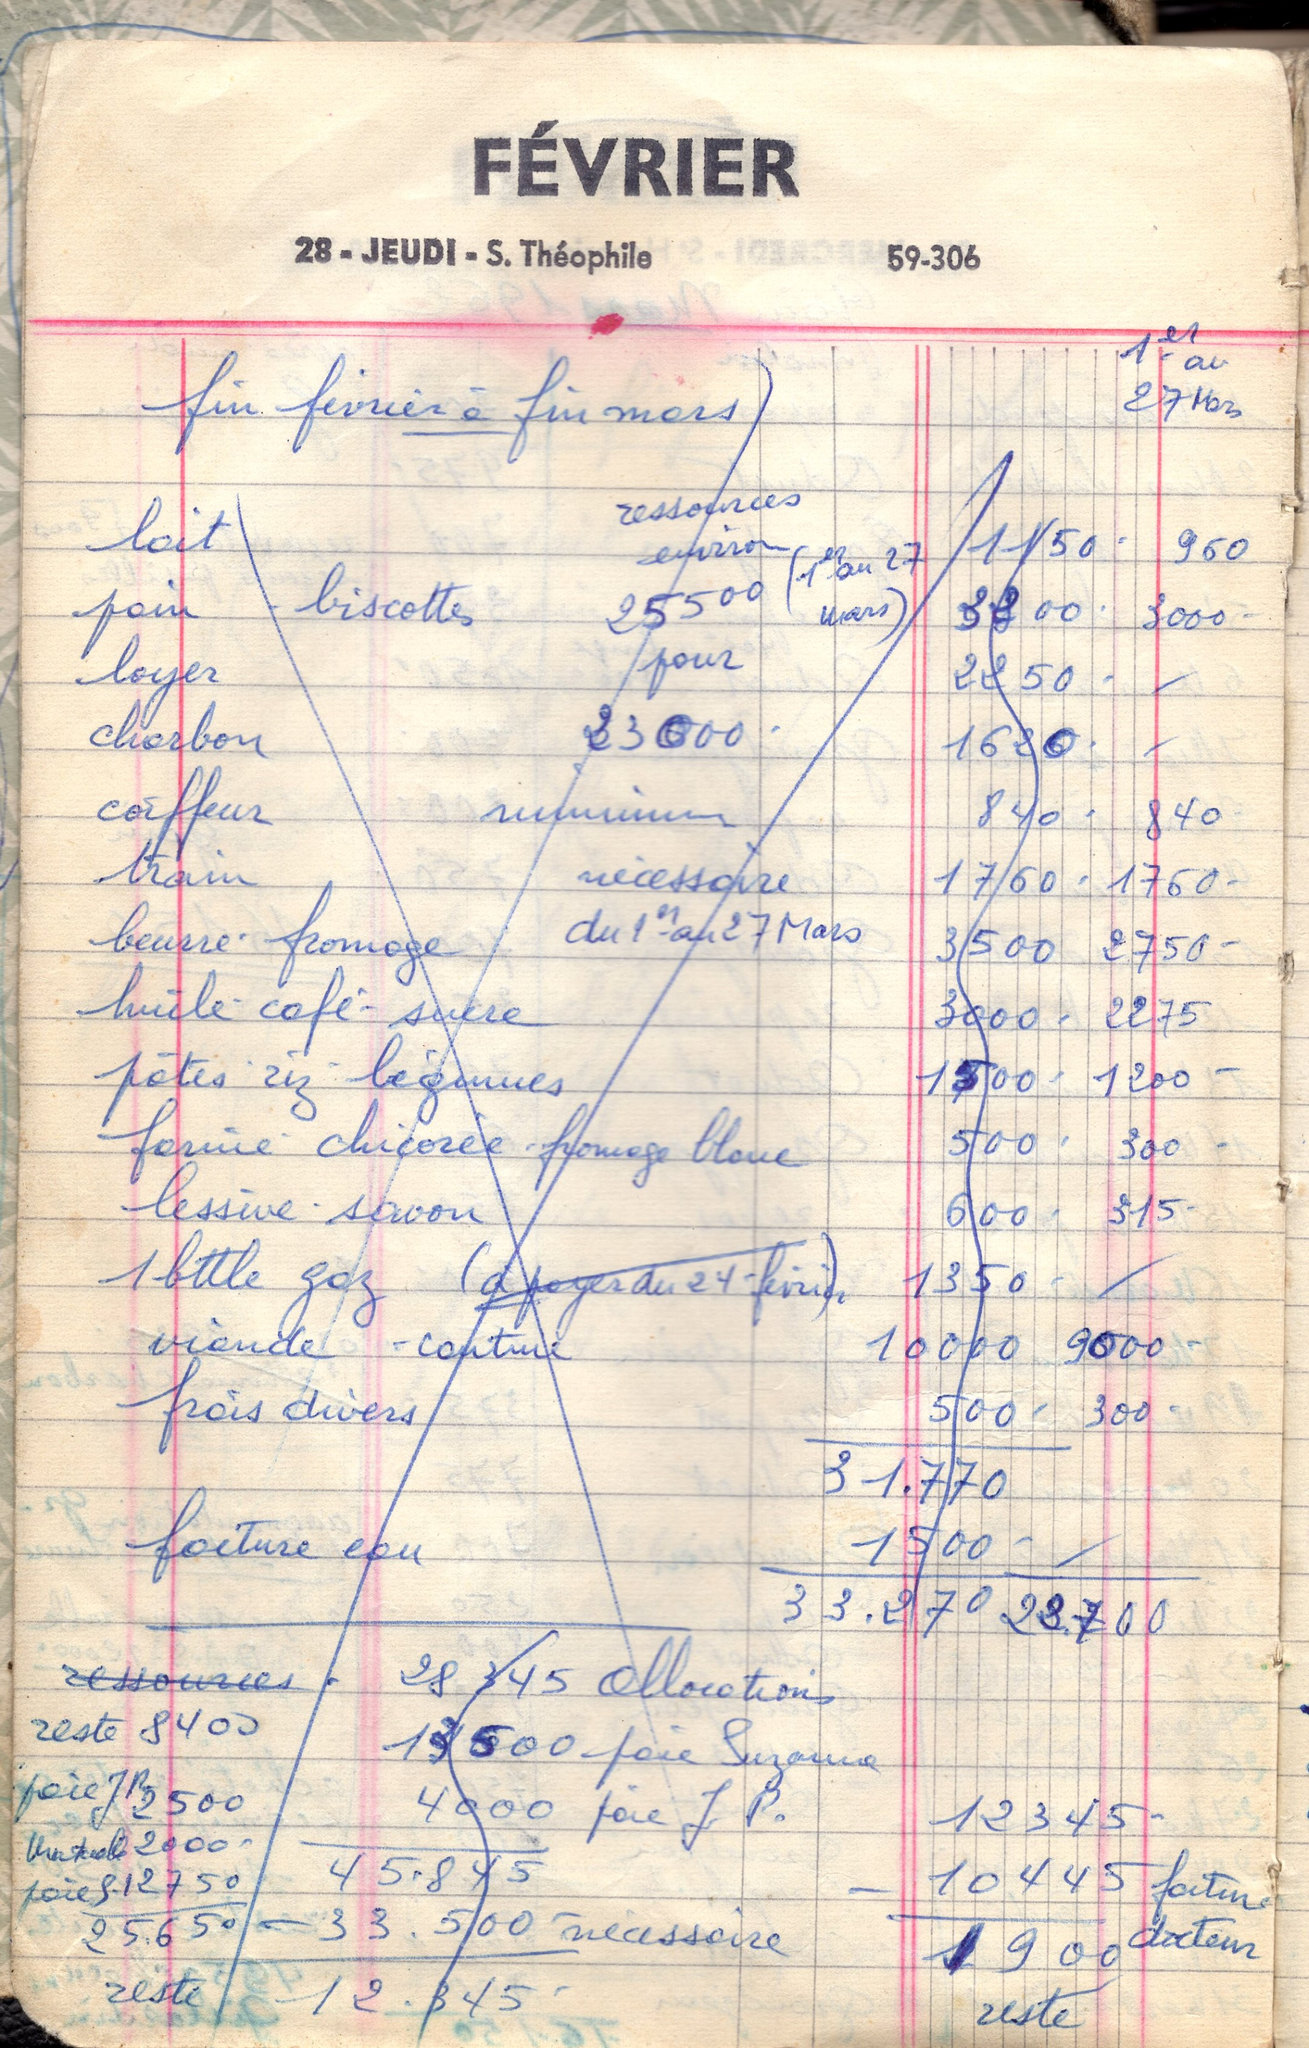 FÉVRIER
28 - JEUDI - S. Théophile 59-306
1er au
27 Mars
fin février à fin mars
ressources
environ
25500 (1er au 27 mars)
pour
23000
minimum
nécessaire
du 1er au 27 Mars
lait 1150 - 960
pain - biscottes 3200 - 3000 -
loyer 2250 - /
charbon 1620 - /
coiffeur 840 - 840
train 1760 - 1760 -
beurre - fromage 3500 2750 -
huile - café - sucre 3000 - 2275
pâtes - riz - légumes 1500 - 1200 -
farine - chicorée - fromage blanc 500 - 300 -
lessive - savon 600 - 315 -
1 btlle gaz (à payer du 24 février) 1350 - /
viande - cantine 10000 9000 -
frais divers 500 - 300 -
31.770
facture eau 1500 - /
33.270 23.700
ressources - 28345 Allocations
reste 8400
13500 paie Suzanne
paie J.P. 2500
4000 paie J. P.
2000 -
45.845
paie S. 12750
25.650
- 33.500 nécessaire
reste 12.345 -
12345 -
- 10445 facture docteur
1900
reste